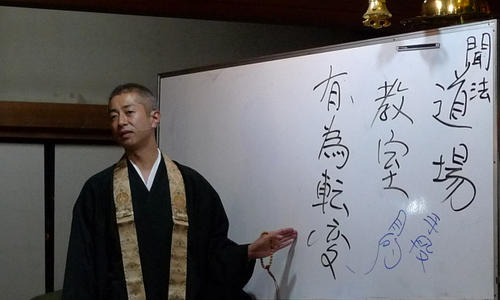 聞法
道場
教室
有為転変